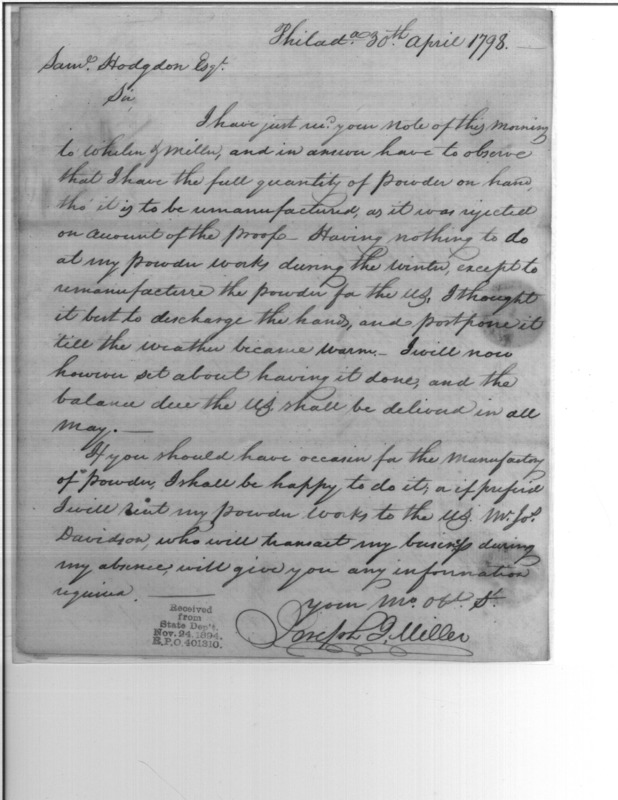 Philada. 30th. April 1798.
Saml. Hodgdon Esqr.
Sir,
I have just recd. your Note of this Morning
to Whelen & Miller, and in answer have to observe
that I have the full quantity of Powder on hand,
tho' it is to be remanufactured, as it was rejected
on account of the proof – Having nothing to do
at my Powder works during the winter, except to
remanufacture the Powder for the US, I thought
it best to discharge the hands, and postpone it
till the weather became warm. – I will now
however set about having it done, and the
balance due the US, shall be delivered in all
May. —
If you should have occasion for the Manufactory
of Powder, I shall be happy to do it; or if prefer'd
I will rent my Powder Works to the US. Mr. Jos.
Davidson, who will transact my business during
my absence, will give you any information
required.
your Mo. Obt. St.
Joseph J. Miller
Received
from
State Dep't.
Nov. 24. 1894.
R.P.O. 401310.